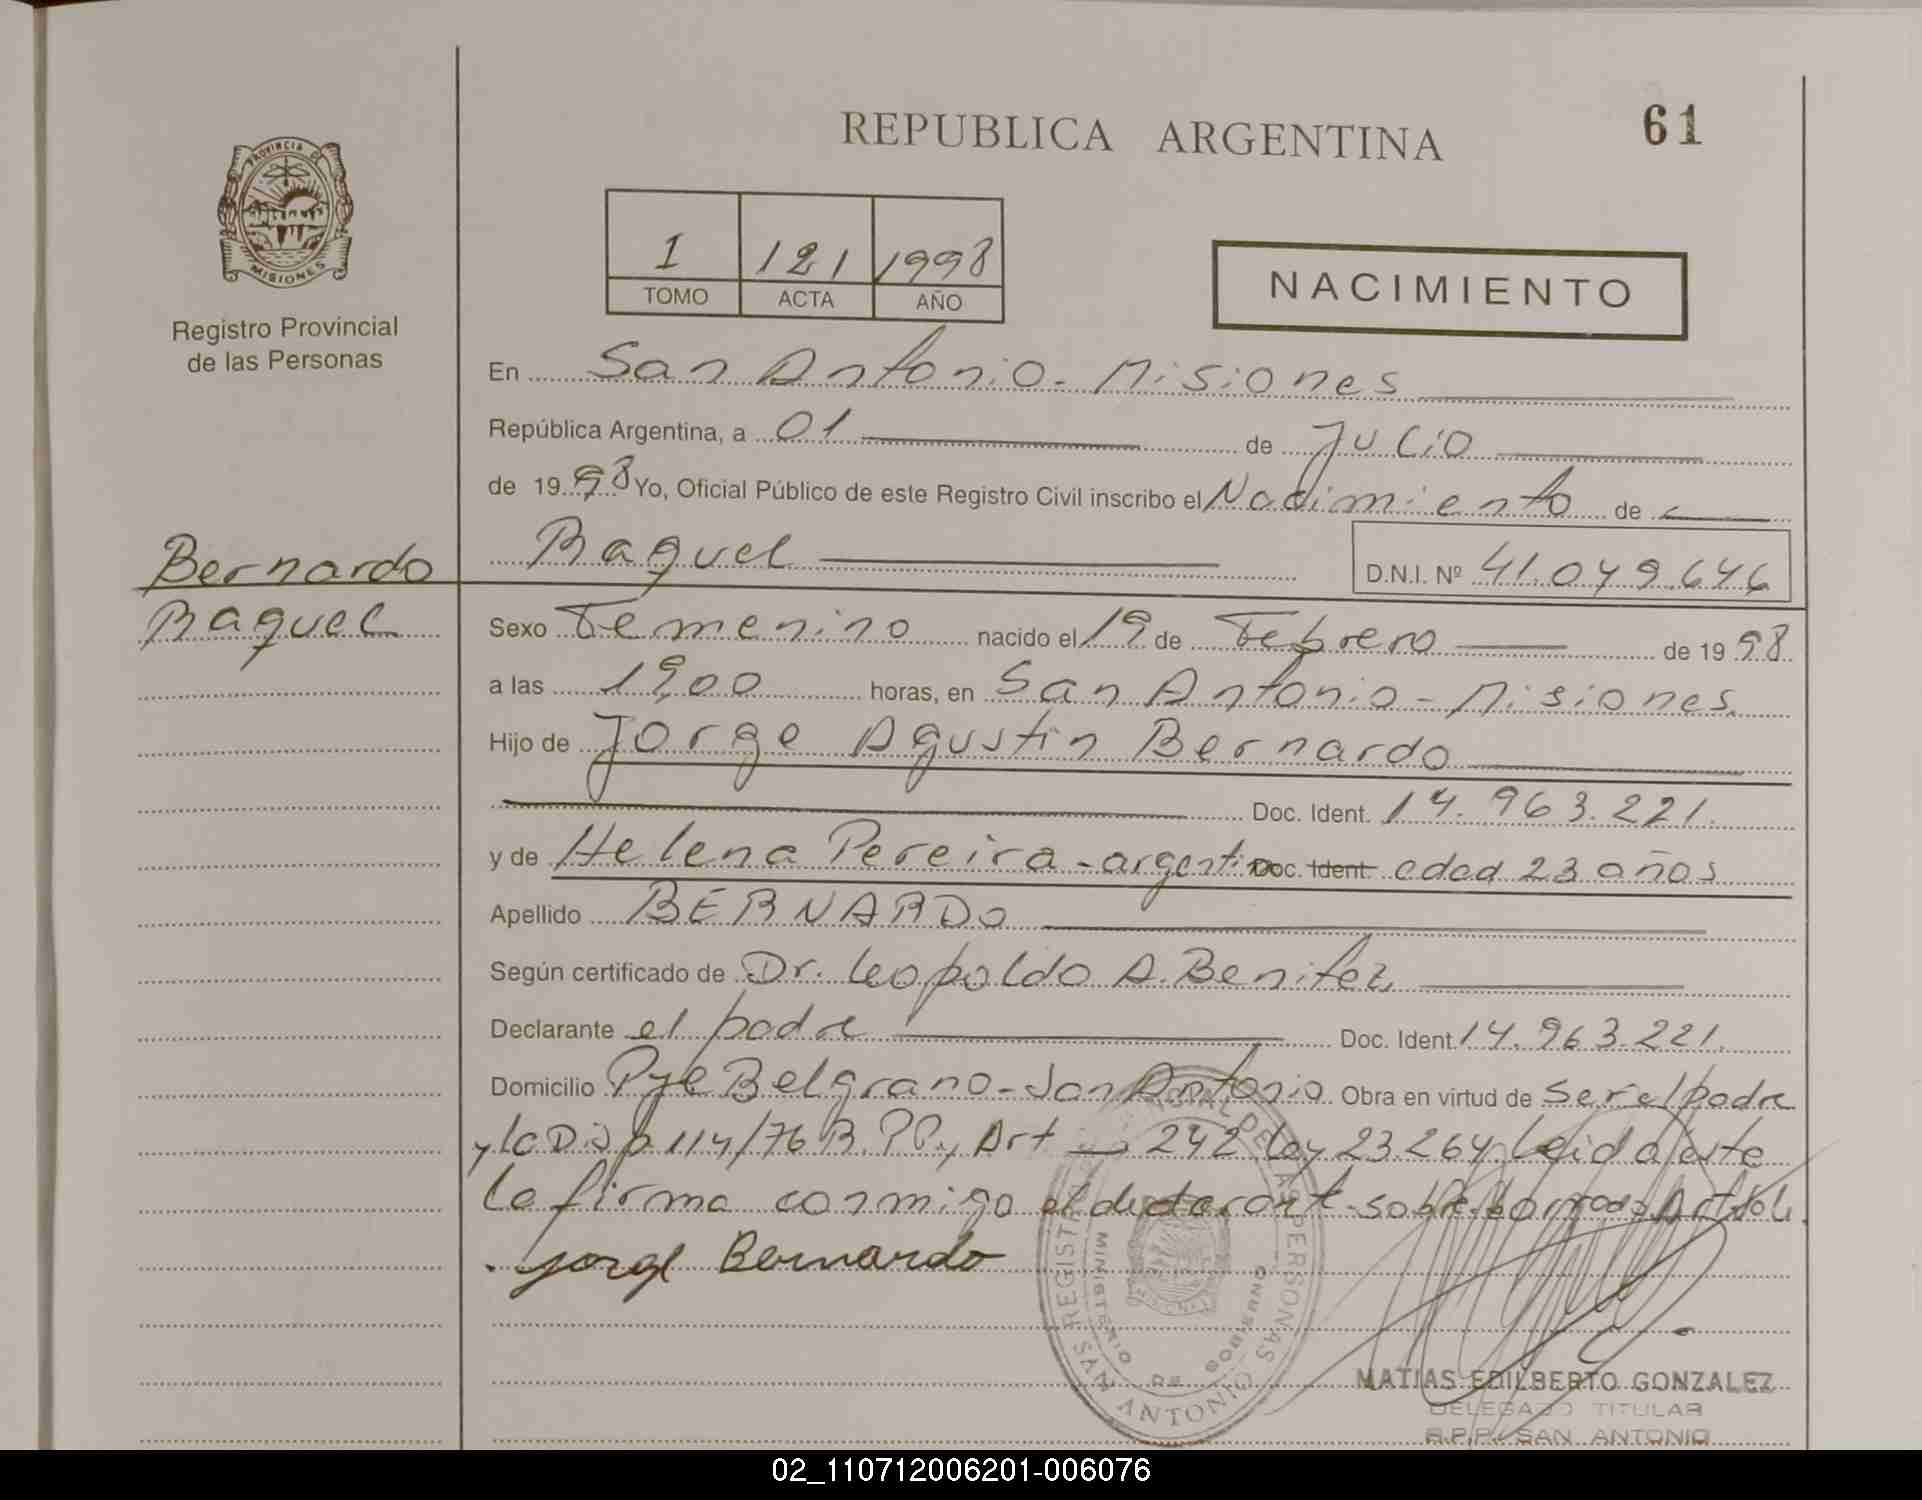 REPUBLICA ARGENTINA
61
PROVINCIA DE
MISIONES
Registro Provincial
de las Personas
I 121 1998
TOMO ACTA AÑO
NACIMIENTO
En San Antonio - Misiones
República Argentina, a 01 de Julio
de 1998 Yo, Oficial Público de este Registro Civil inscribo el Nacimiento de
Raquel D.N.I. Nº 41.049.646
Bernardo
Raquel
Sexo Femenino nacido el 19 de Febrero de 1998
a las 19,00 horas, en San Antonio - Misiones.
Hijo de Jorge Agustin Bernardo
Doc. Ident. 14.963.221.
y de Helena Pereira - argentina Doc. Ident. edad 23 años
Apellido BERNARDO
Según certificado de Dr. Leopoldo A. Benitez
Declarante el padre Doc. Ident. 14.963.221.
Domicilio Pje Belgrano - San Antonio Obra en virtud de ser el padre
y la Disp 114/76 R.PP., Art 242 Ley 23.264 Leida este
la firma conmigo el declarante - sobre borrado
Jorge Bernardo
REGISTRO PROVINCIAL DE LAS PERSONAS
MINISTERIO DE GOBIERNO
MISIONES
SAN ANTONIO
MATIAS EDILBERTO GONZALEZ
DELEGADO TITULAR
R.P.P. SAN ANTONIO
02_110712006201-006076